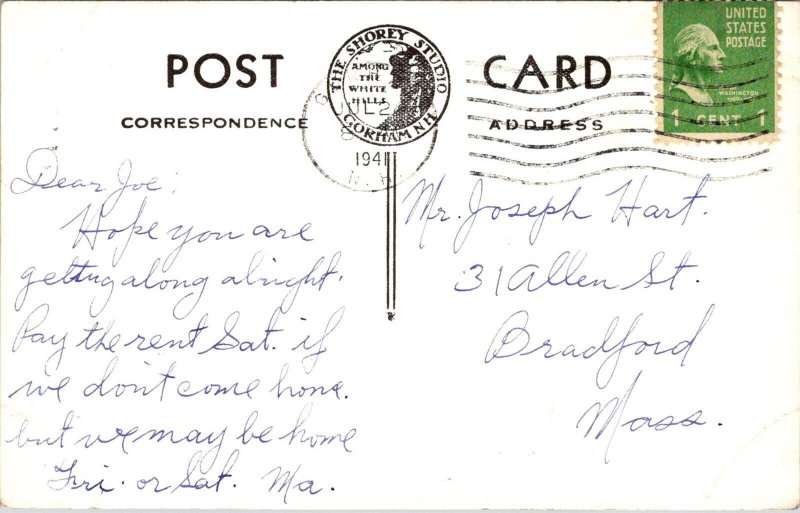 POST CARD
CORRESPONDENCE
ADDRESS
THE SHOREY STUDIO
AMONG
THE
WHITE
HILLS
GORHAM N.H.
JUL 2
1941
N.H.
UNITED
STATES
POSTAGE
WASHINGTON
1 CENT 1
Dear Joe;
Hope you are
getting along alright.
Pay the rent Sat. if
we don't come home.
but we may be home
Fri. or Sat. Ma.
Mr. Joseph Hart.
31 Allen St.
Bradford
Mass.